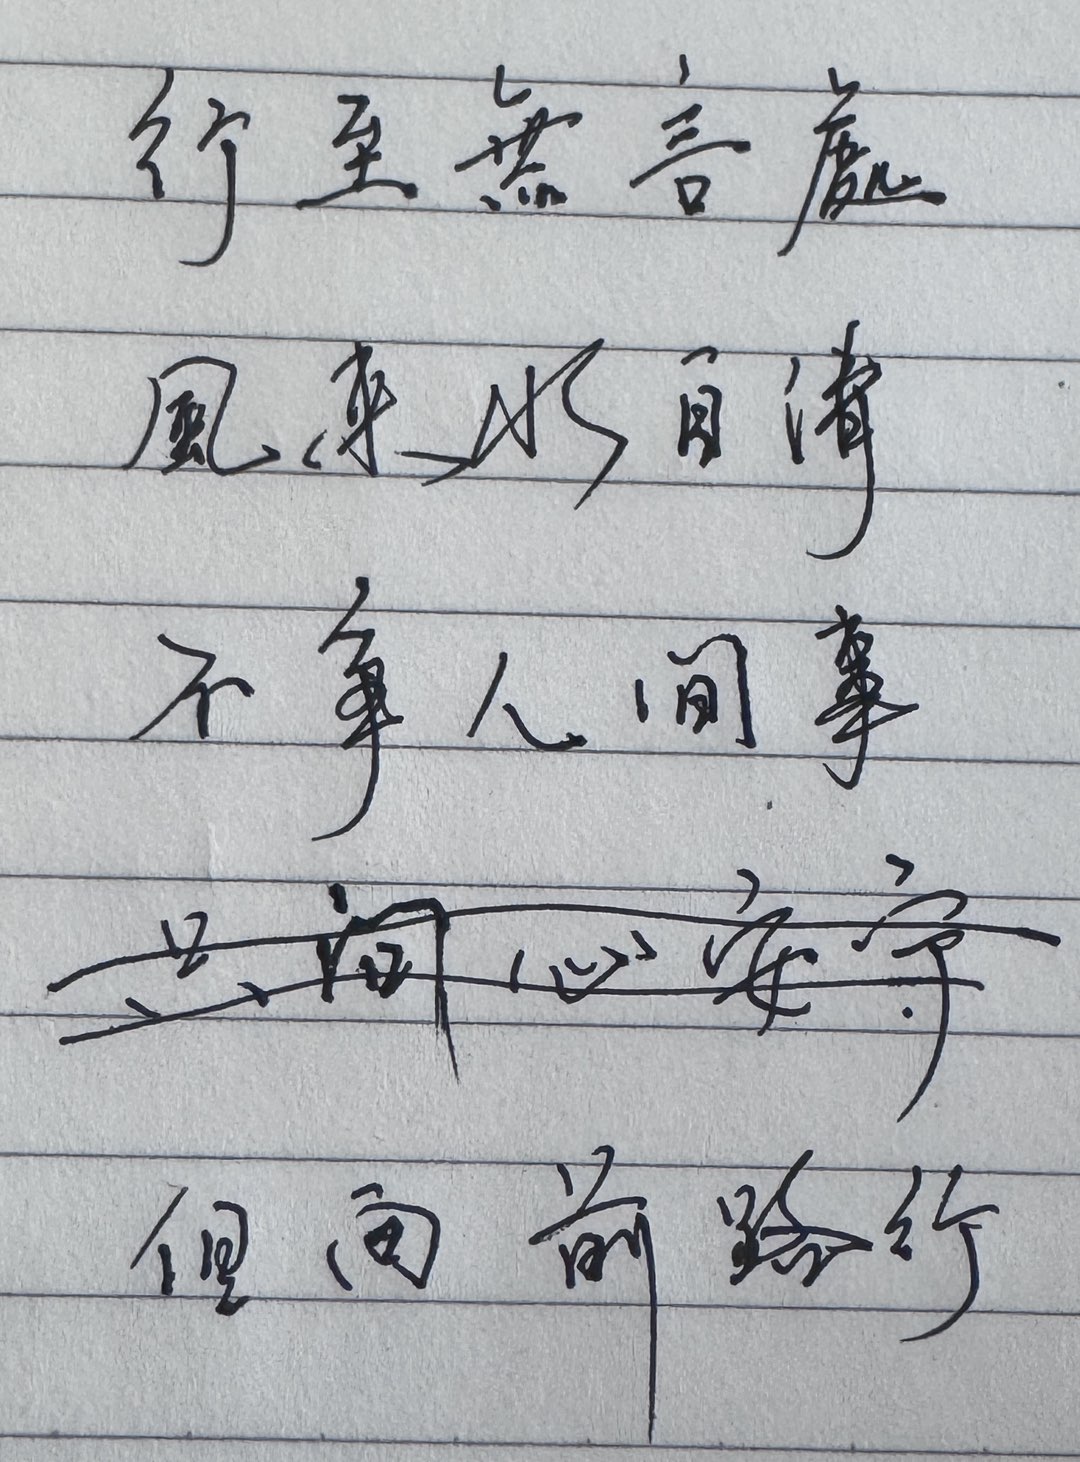 行至無音處
風來水自清
不爭人間事
只向心安寧
但向前路行